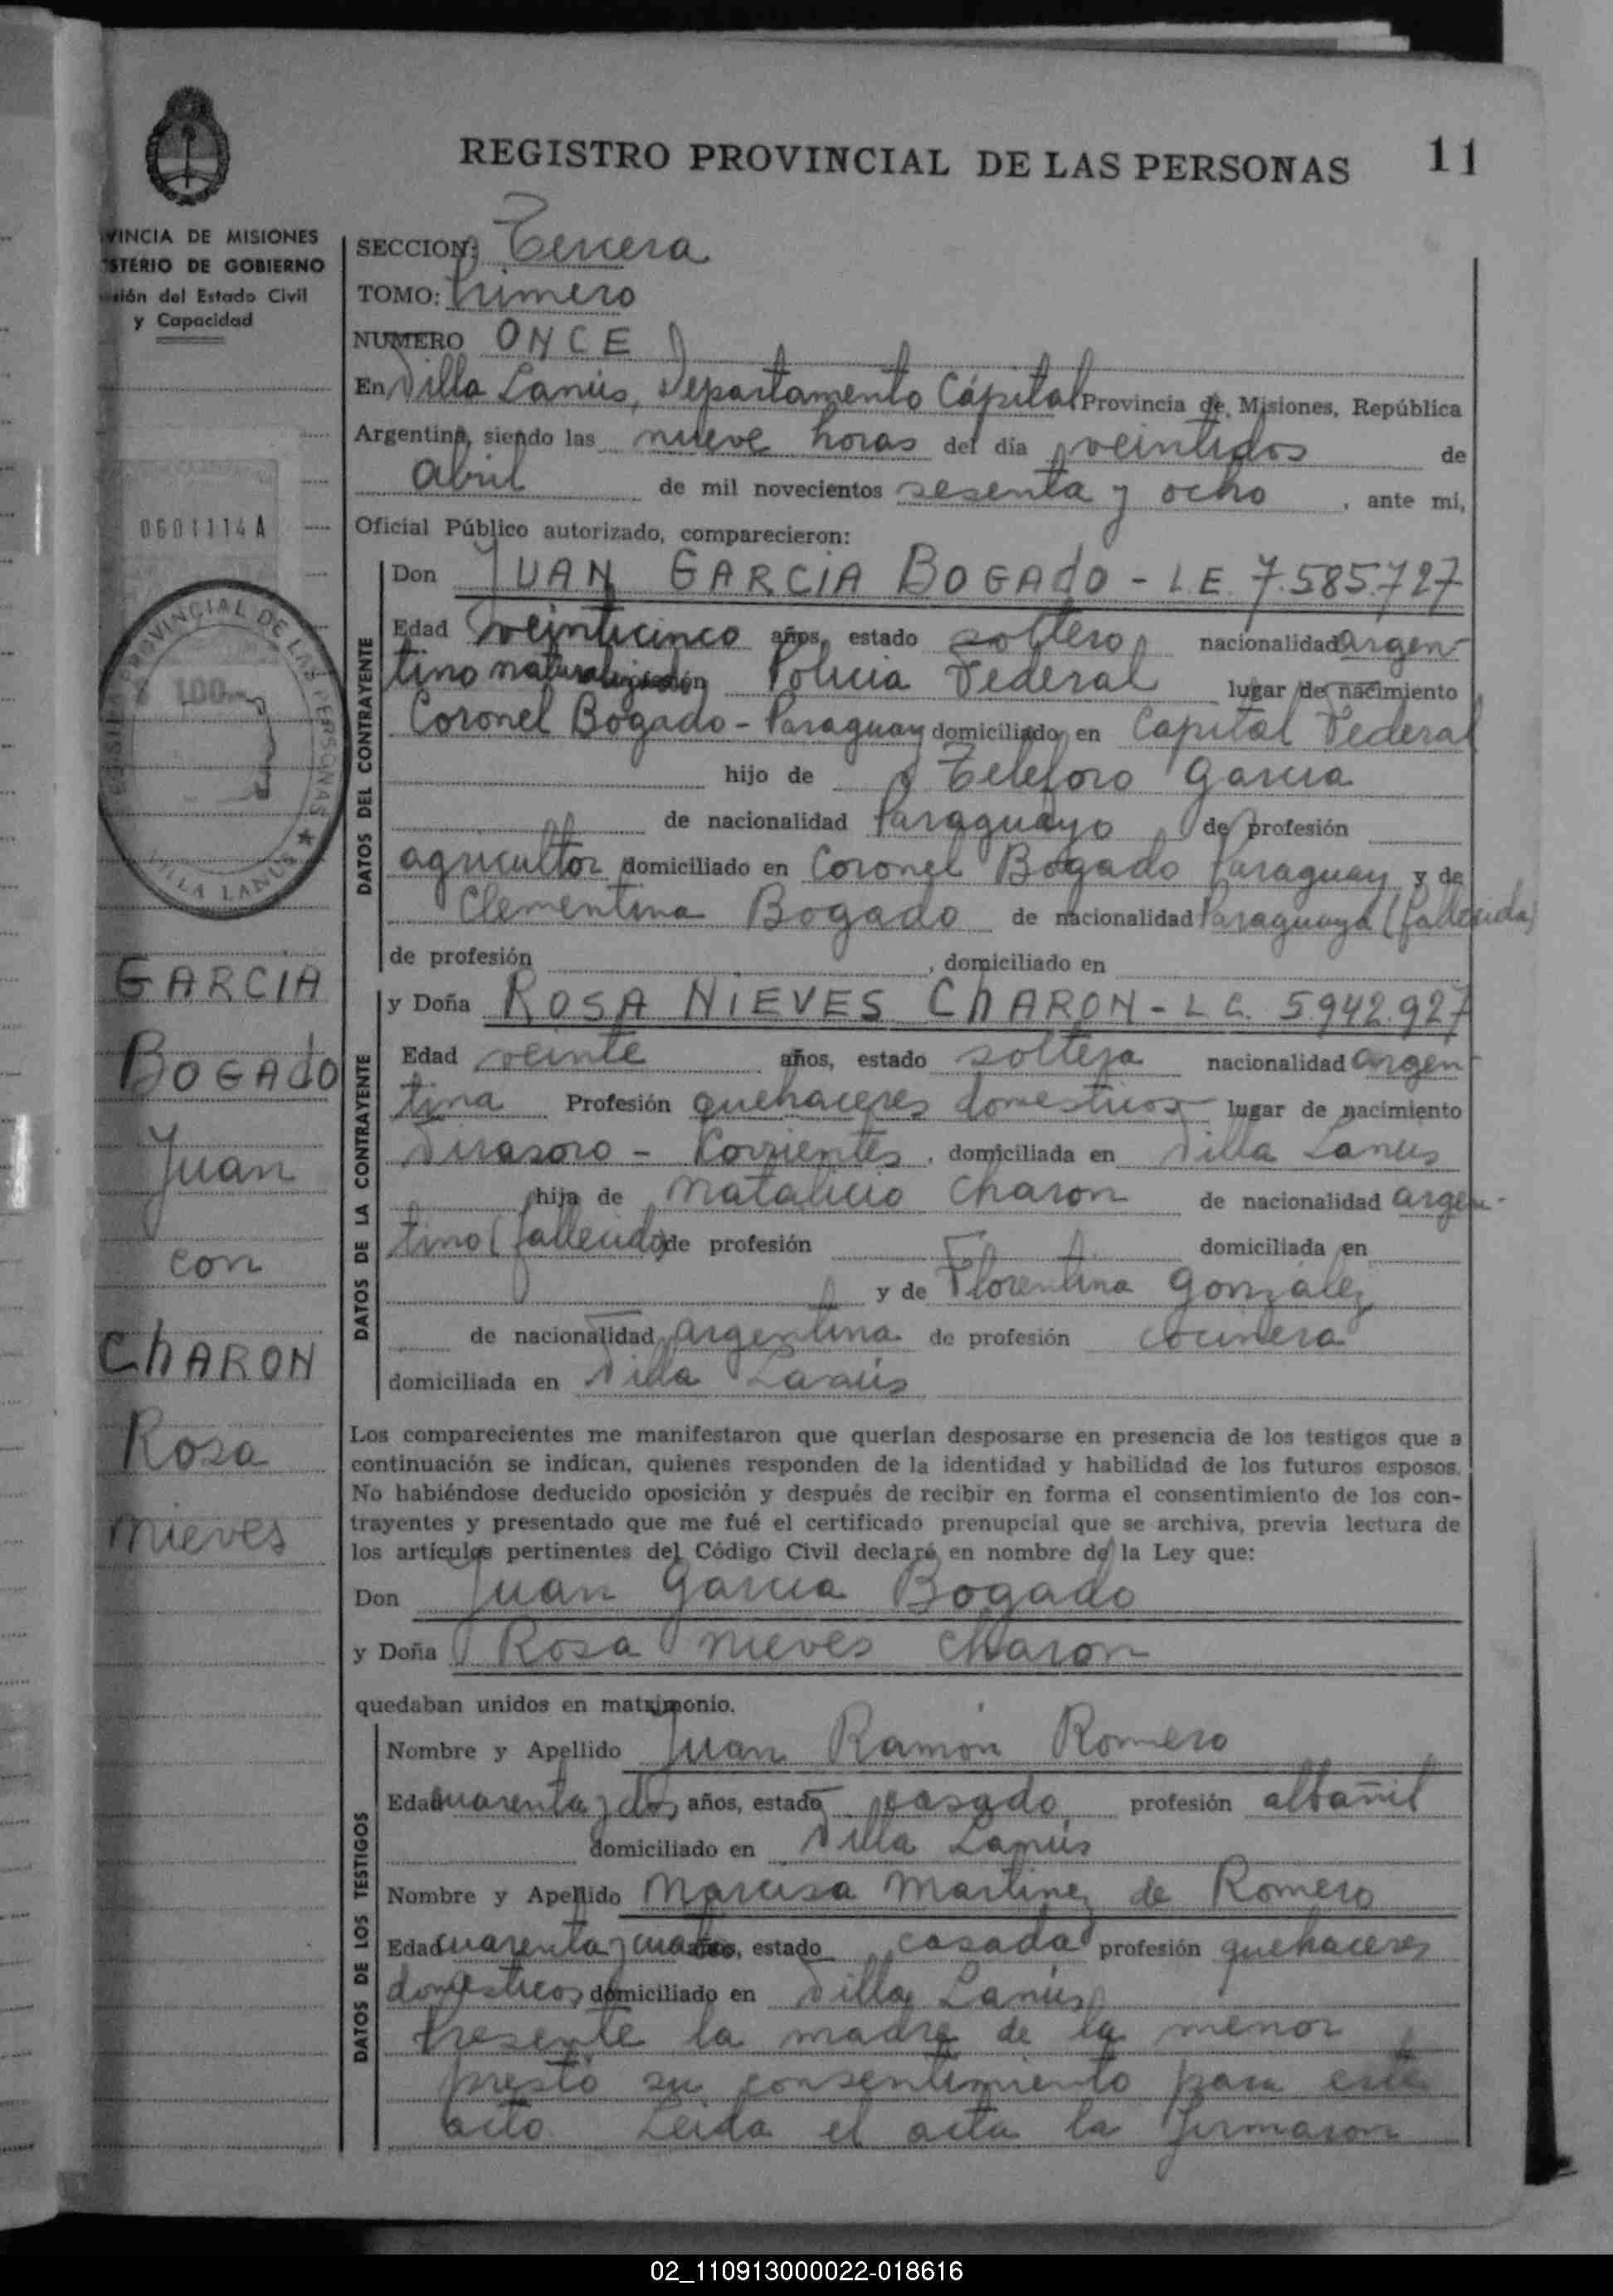 REGISTRO PROVINCIAL DE LAS PERSONAS 11
VINCIA DE MISIONES
STERIO DE GOBIERNO
del Estado Civil
y Capacidad
0601114 A
PROVINCIAL DE LAS PERSONAS
100
VILLA LANUS
GARCIA
BOGADO
Juan
con
CHARON
Rosa
Nieves
SECCION: Tercera
TOMO: Primero
NUMERO ONCE
En Villa Lanús, Departamento Cápital Provincia de Misiones, República
Argentina, siendo las nueve horas del día veintidos de
Abril de mil novecientos sesenta y ocho, ante mi,
Oficial Público autorizado, comparecieron:
DATOS DEL CONTRAYENTE
Don JUAN GARCIA BOGADO - L.E. 7.585.727
Edad veinticinco años, estado soltero, nacionalidad argen-
tino naturalizado Policia Federal lugar de nacimiento
Coronel Bogado - Paraguay domiciliado en Capital Federal
hijo de Teleforo Garcia
de nacionalidad Paraguayo de profesión
agricultor domiciliado en Coronel Bogado Paraguay y de
Clementina Bogado de nacionalidad Paraguaya (fallecida)
de profesión , domiciliado en
DATOS DE LA CONTRAYENTE
y Doña ROSA NIEVES CHARON - L C. 5.942.927
Edad veinte años, estado soltera nacionalidad argen-
tina Profesión quehaceres domesticos lugar de nacimiento
Virasoro - Corrientes, domiciliada en Villa Lanús
hija de Natalicio Charon de nacionalidad argen-
tino (fallecido) de profesión domiciliada en
y de Florentina Gonzalez
de nacionalidad argentina de profesión cocinera
domiciliada en Villa Lanús
Los comparecientes me manifestaron que querían desposarse en presencia de los testigos que a
continuación se indican, quienes responden de la identidad y habilidad de los futuros esposos.
No habiéndose deducido oposición y después de recibir en forma el consentimiento de los con-
trayentes y presentado que me fué el certificado prenupcial que se archiva, previa lectura de
los artículos pertinentes del Código Civil declaré en nombre de la Ley que:
Don Juan Garcia Bogado
y Doña Rosa Nieves Charon
quedaban unidos en matrimonio.
DATOS DE LOS TESTIGOS
Nombre y Apellido Juan Ramón Romero
Edad cuarenta y dos, años, estado casado profesión albañil
domiciliado en Villa Lanús
Nombre y Apellido Narcisa Martinez de Romero
Edad cuarenta y cuatro, estado casada profesión quehaceres
domesticos domiciliado en Villa Lanús
Presente la madre de la menor
prestó su consentimiento para este
acto. Leida el acta la firmaron
02_110913000022-018616